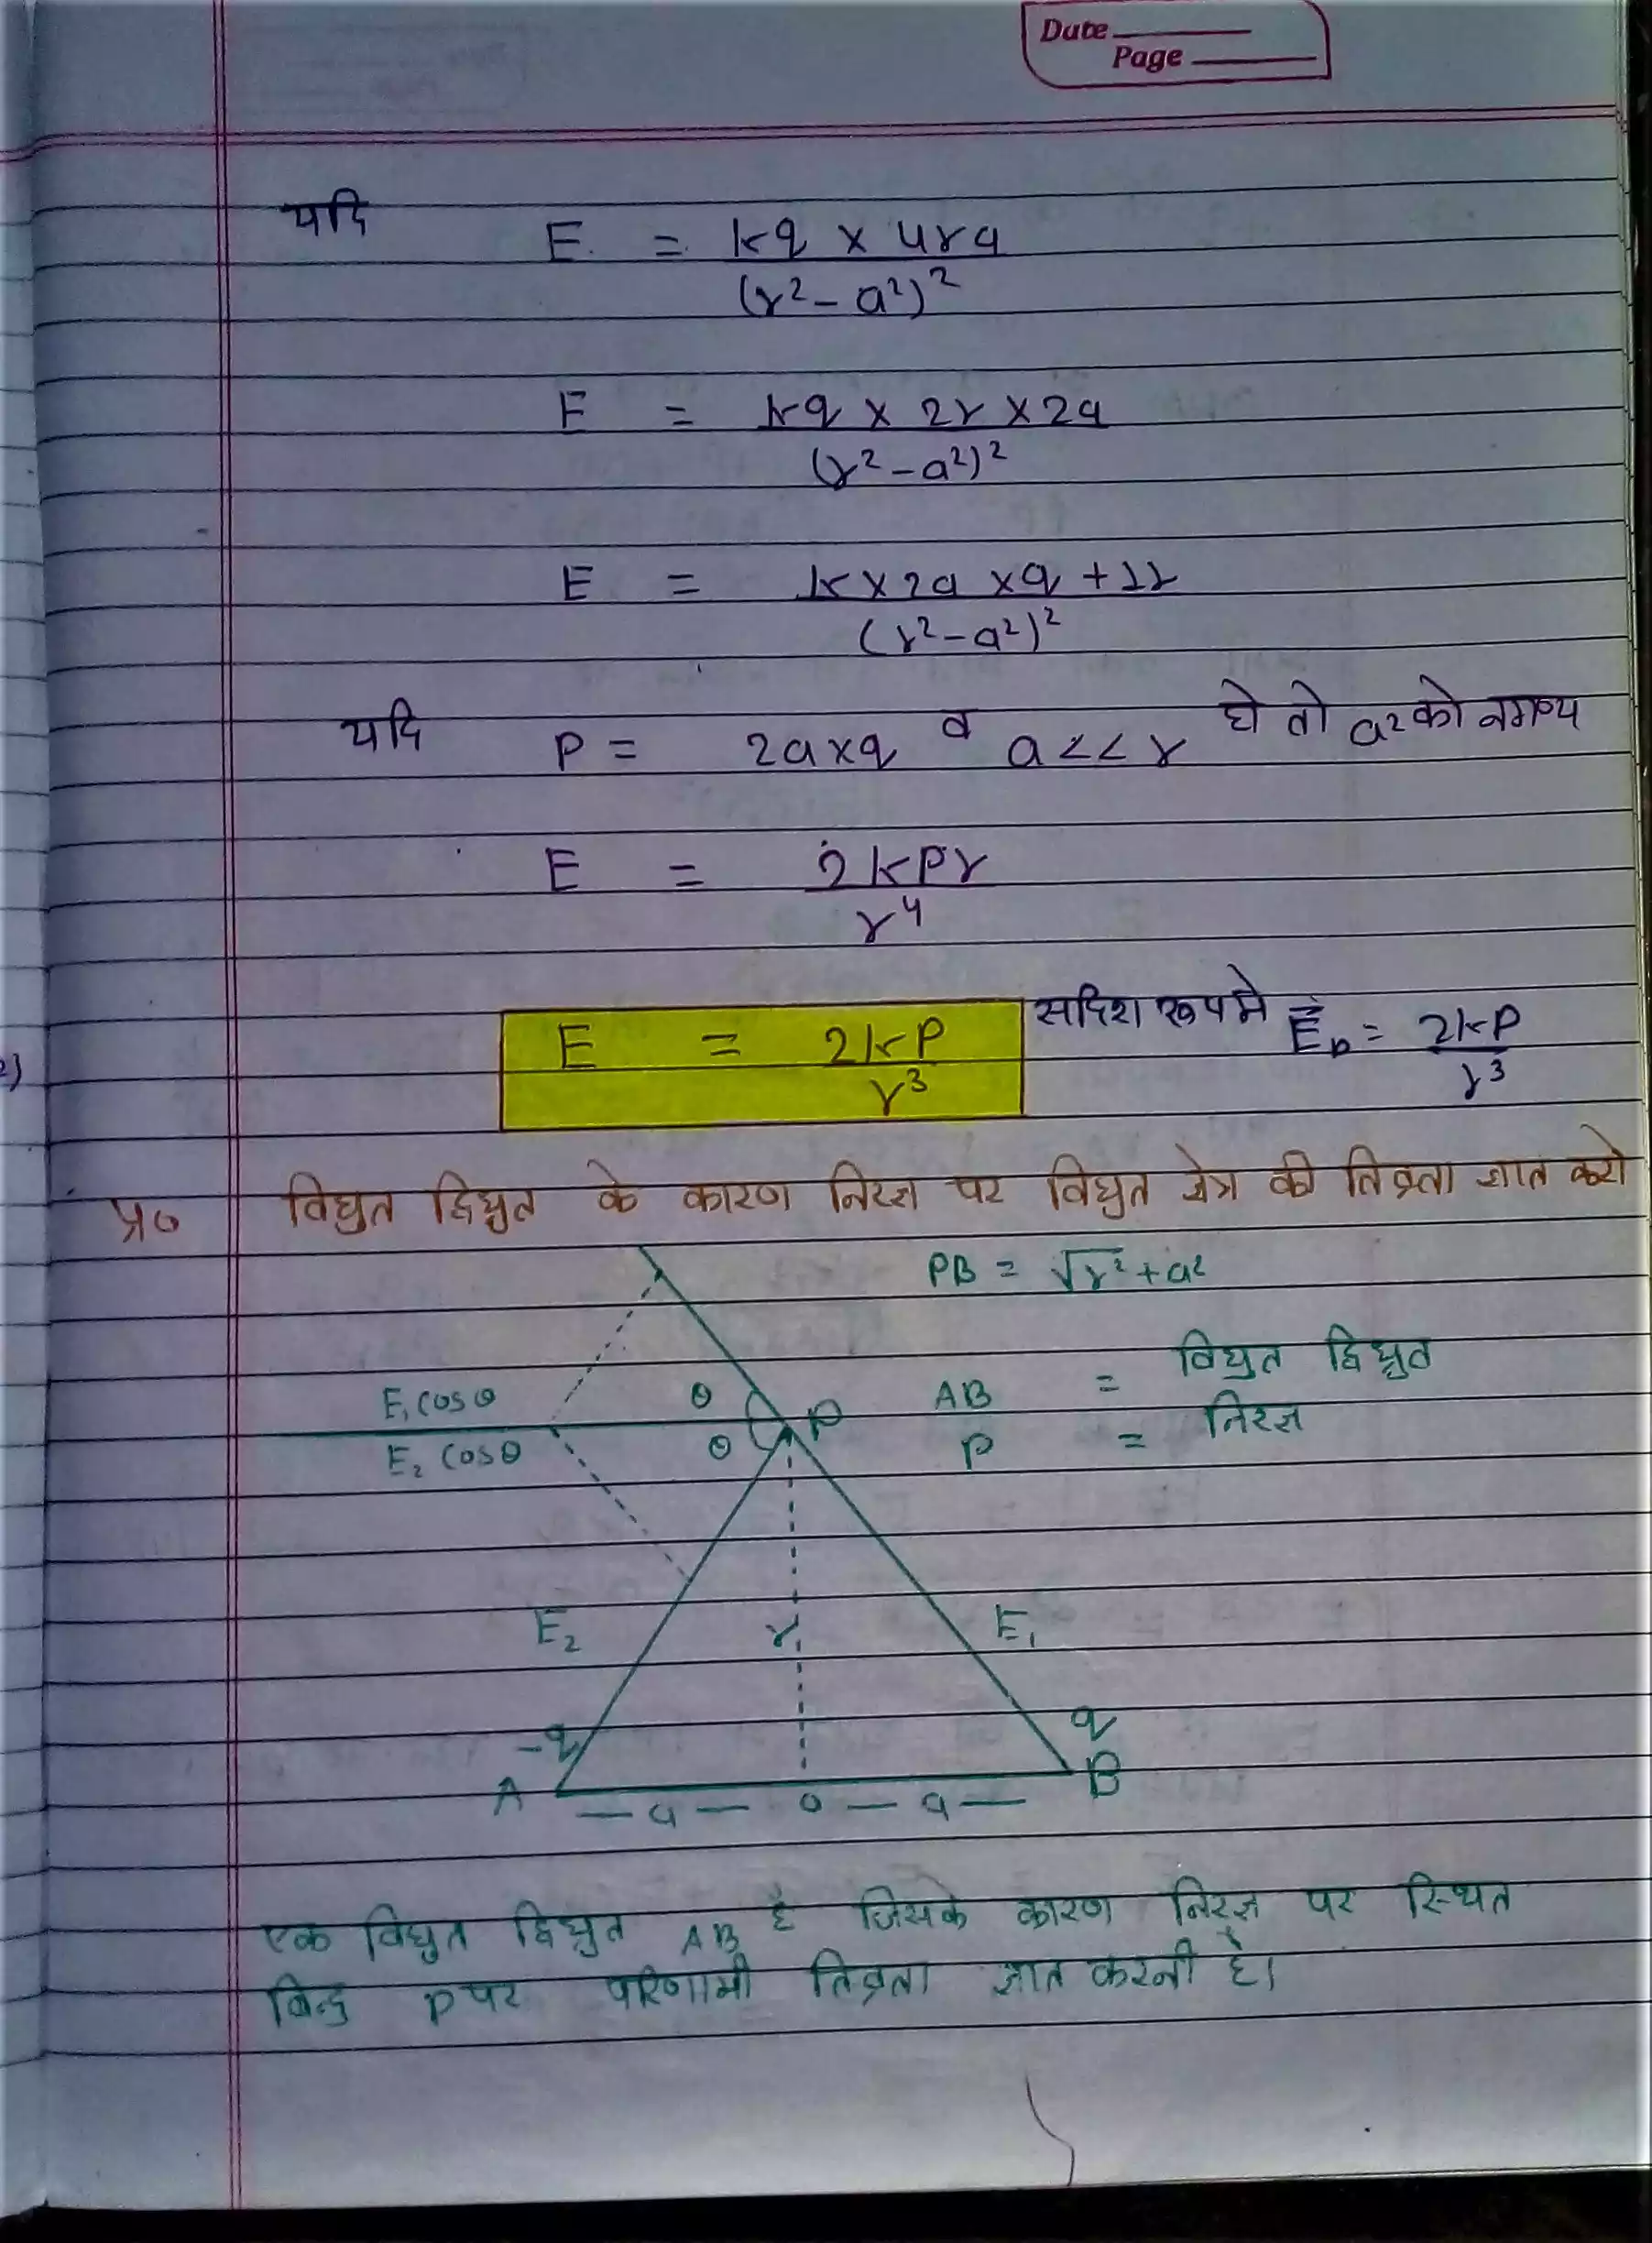 Date
Page
यदि E = kq × 4ra
(r² – a²)²
E = kq × 2r × 2a
(r² – a²)²
E = k × 2a × q + 2r
(r² – a²)²
यदि P = 2a×q व a << r घे तो a² को नगण्य
E = 2kpr
r⁴
E = 2kP
r³
सदिश रूप मे E⃗ = 2kP
r³
प्र० विधुत द्विध्रुत के कारण निरक्ष पर विधुत क्षेत्र की तिव्रता ज्ञात करो
PB = √r² + a²
AB = विधुत द्विध्रुत
P = निरक्ष
E₁ cosθ
θ
P
E₂ cosθ
θ
E₂
r
E₁
-q
q
A
B
— a — o — a —
एक विधुत द्विध्रुत AB है जिसके कारण निरक्ष पर स्थित
बिन्दु P पर परिणामी तिव्रता ज्ञात करनी है।